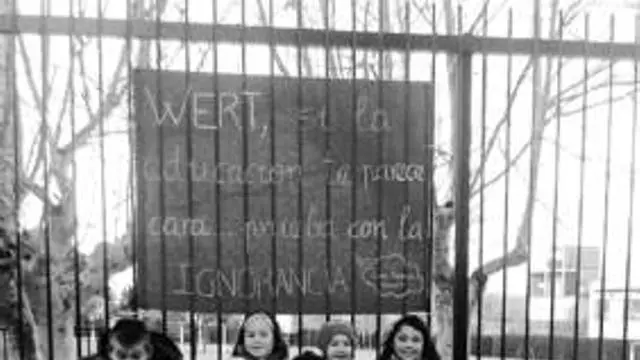 WERT, si la
educación te parece
cara... prueba con la
IGNORANCIA